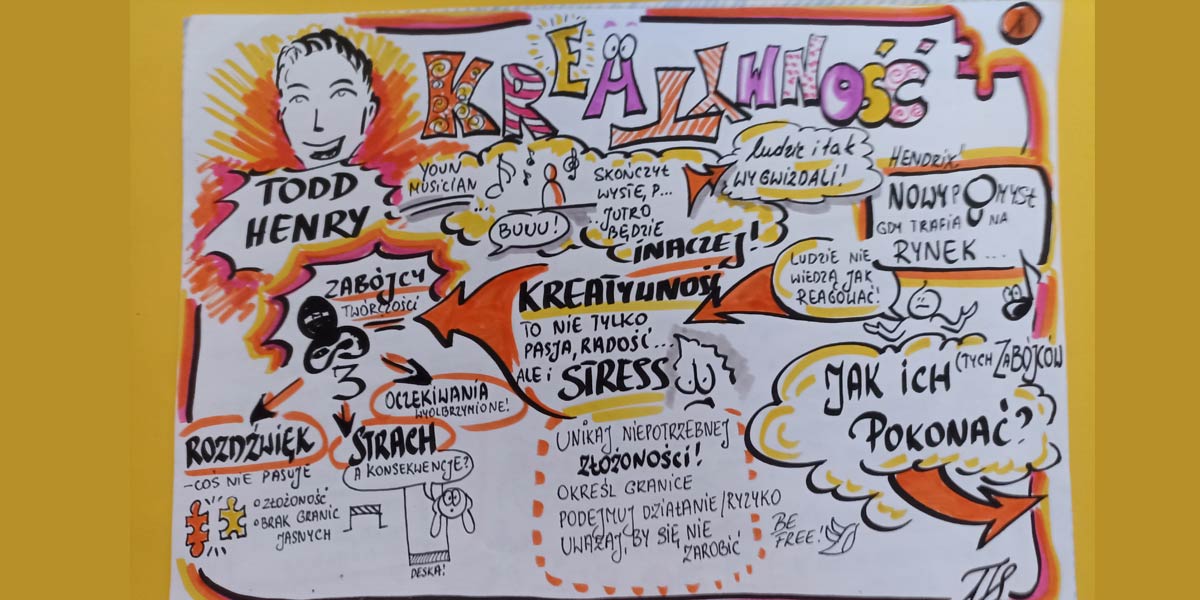 KREATYWNOŚĆ
1
TODD
HENRY
YOUN
MUSICIAN
BUUU!
SKOŃCZYŁ
WYSTĘP...
JUTRO
BĘDZIE
INACZEJ!
ludzie i tak
WYGWIZDALI!
HENDRIX!
NOWY POMYSŁ
GDY TRAFIA NA
RYNEK...
LUDZIE NIE
WIEDZĄ JAK
REAGOWAĆ!
KREATYWNOŚĆ
TO NIE TYLKO
PASJA, RADOŚĆ...
ALE i STRESS
ZABÓJCY
TWÓRCZOŚCI
3
OCZEKIWANIA
WYOLBRZYMIONE!
ROZDŹWIĘK
- COŚ NIE PASUJE
ZŁOŻONOŚĆ
BRAK GRANIC
JASNYCH
STRACH
A KONSEKWENCJE?
DESKA!
UNIKAJ NIEPOTRZEBNEJ
ZŁOŻONOŚCI!
OKREŚL GRANICE
PODEJMUJ DZIAŁANIE/RYZYKO
UWAŻAJ, BY SIĘ NIE
ZAROBIĆ
BE
FREE!
JAK ICH (TYCH ZABÓJCÓW
POKONAĆ?